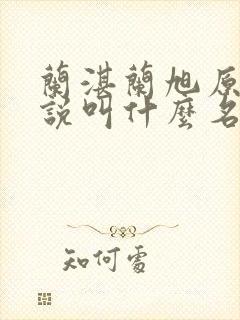 蘭湛蘭旭原
說叫什麼名
知何處